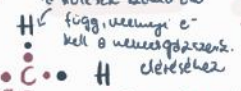 H függ, mennyi e⁻
kell a nemesgázszerk.
C H eléréséhez